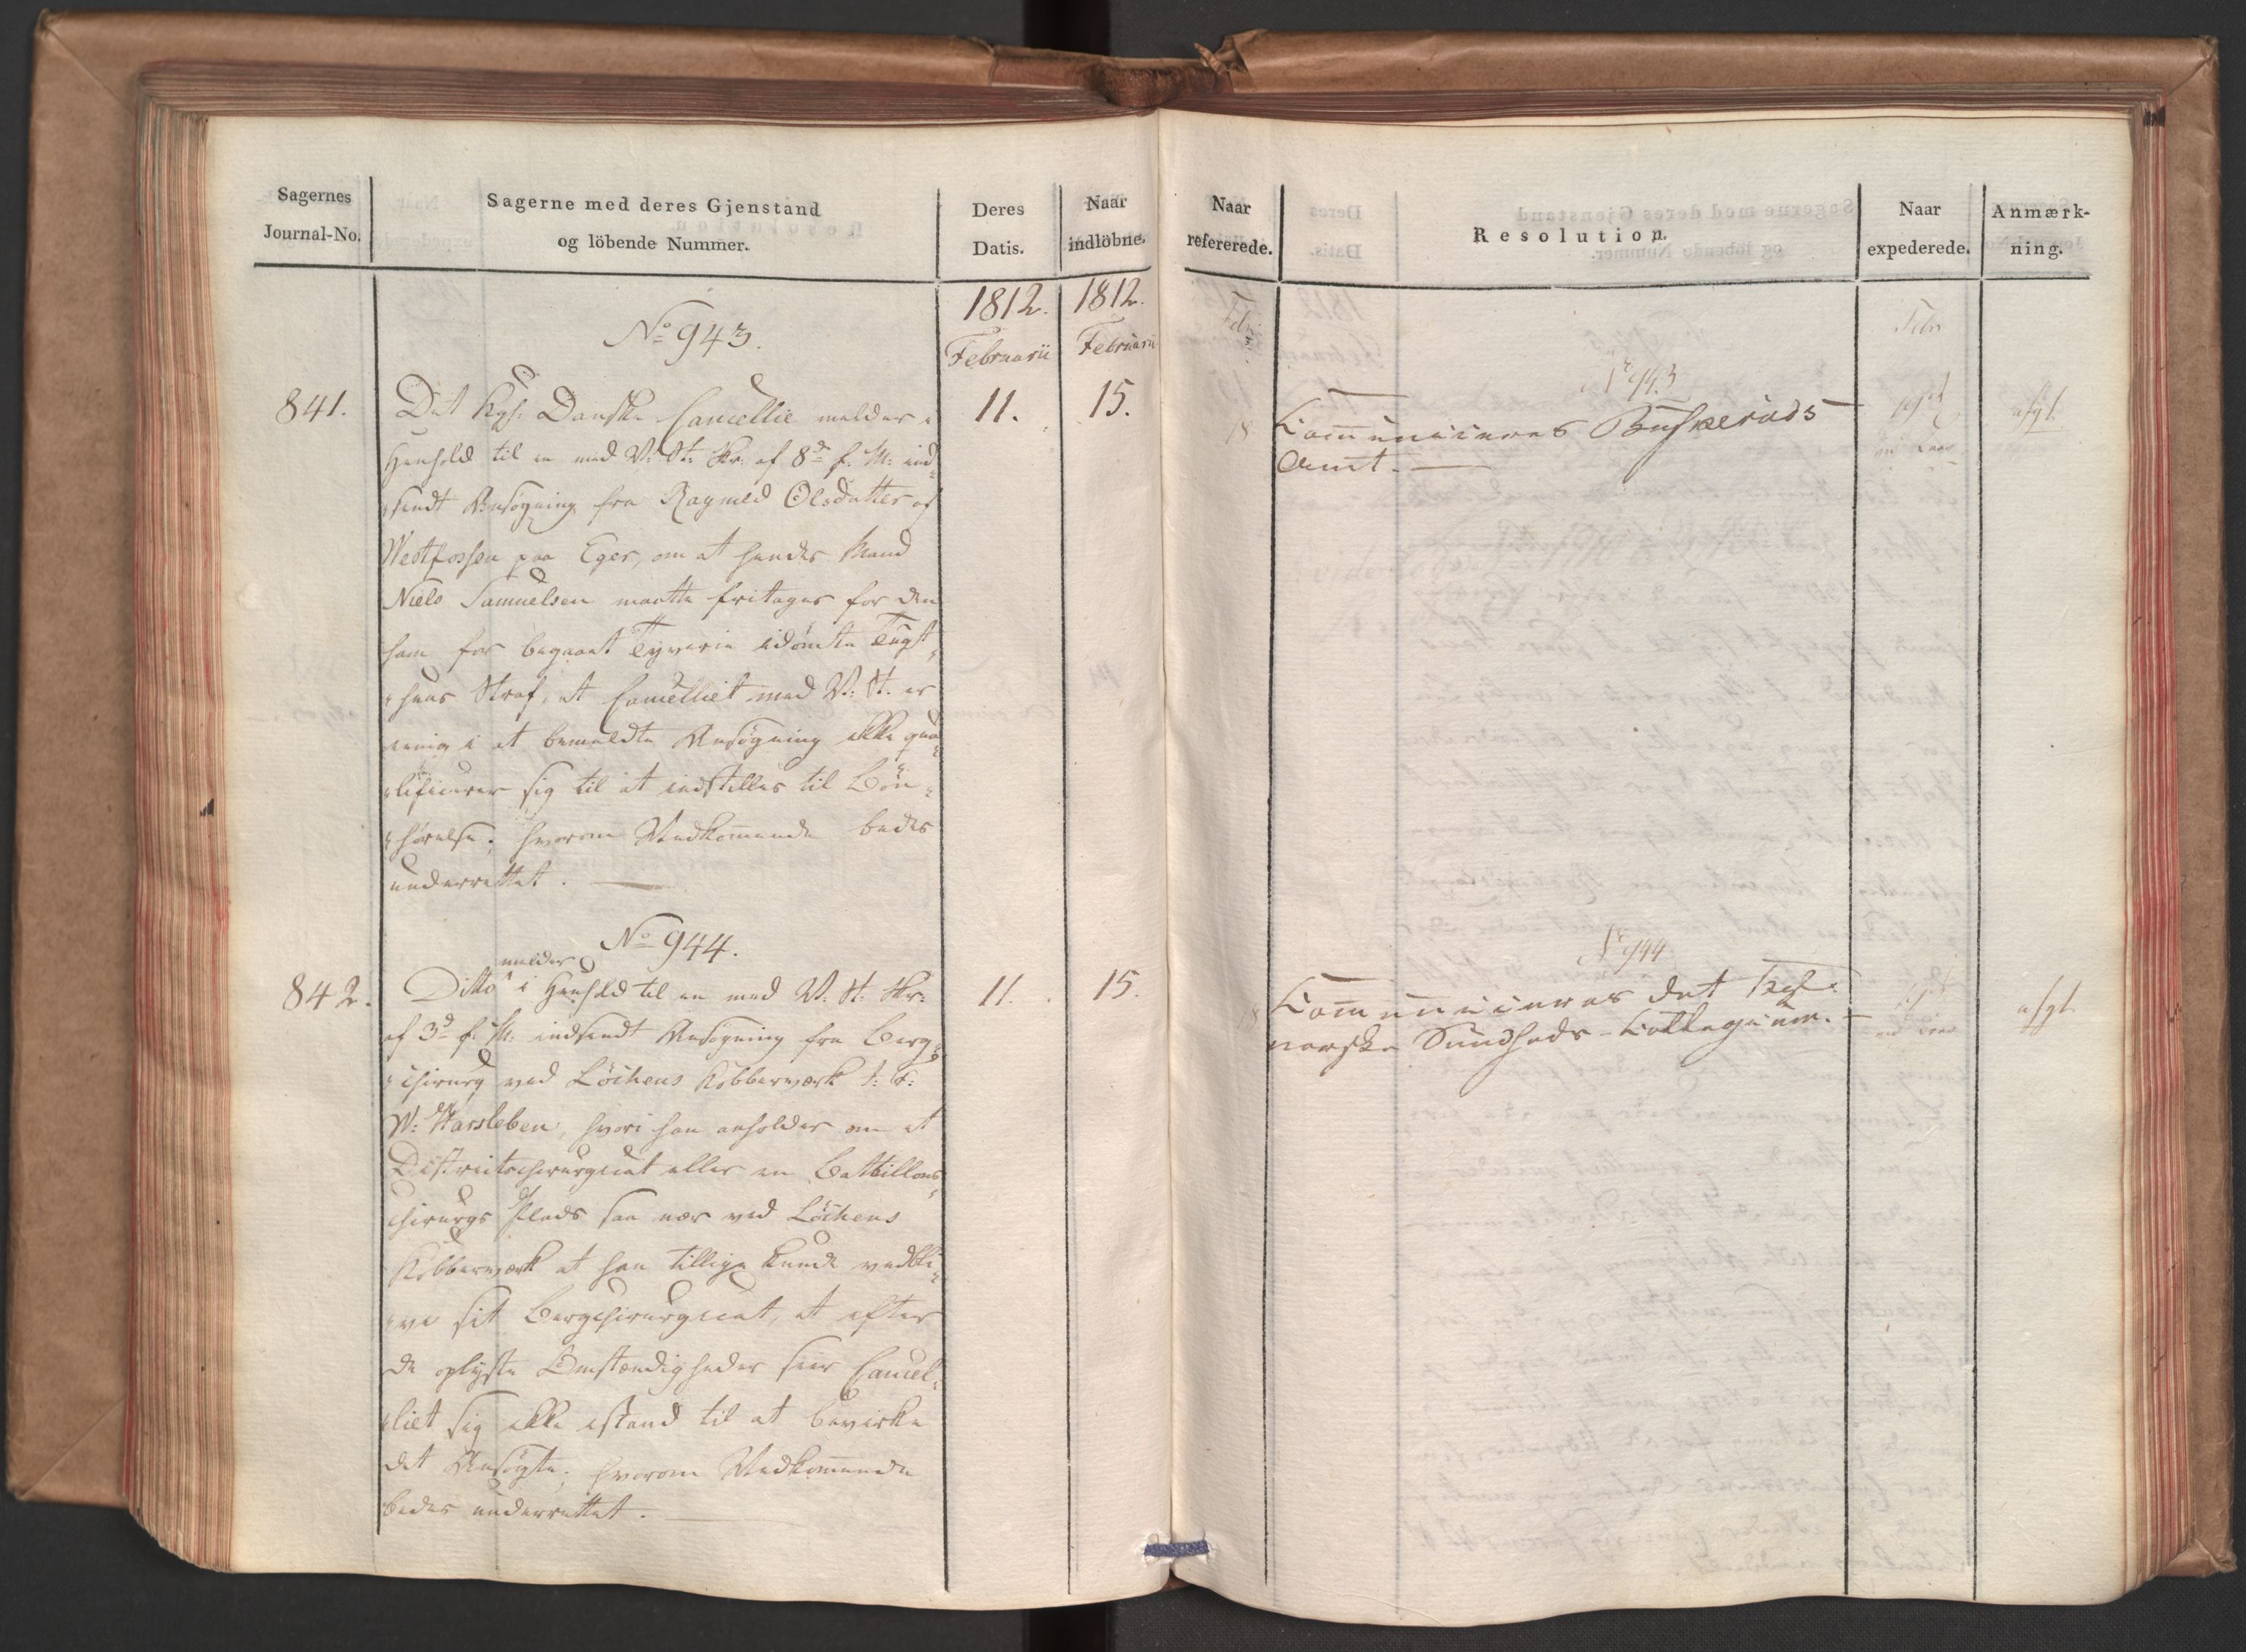 Sagernes
Journal-No.
Sagerne med deres Gjenstand
og löbende Nummer.
Deres
Datis.
Naar
indlöbne.
1812.
1812.
Februarii
Februarii
No 943.
841.
11.
15.
Det Kgs: Danske Cancellie melder i
Henhold til en med V: St: Skr: af 8de f. M: ind-
sendt Ansøgning fra Ragnild Olsdatter af
Westfossen paa Eger, om at hendes Mand
Niels Samuelsen maatte fritages for den
ham for begaaet Tyverie idømte Tugt-
huus Straf, at Cancelliet med V: St. er
eenig i at bemeldte Ansøgning ikke qua-
lificerer sig til at indstilles til Bøn-
hørelse; hvorom Vedkom̅ende bedes
underrettet.
No 944.
842.
11.
15.
melder
Ditto i Henhold til en med V. St. Skr:
af 3d f. M: indsendt Ansøgning fra Berg-
chirurg ved Löchens Kobberværk
W: Harsleben, hvori han anholder om et
Districtschirurgicat eller en Battillons
chirurgs Plads saa nær ved Löchens
Kobberværk at han tillige kunde vedbli-
ve sit Bergchirurgicat, at efter
de oplyste Omstændigheder seer Cancel-
liet sig ikke istand til at bevirke
det Ansøgte; hvorom Vedkom̅ende
bedes underrettet.
Naar
refererede.
Resolution.
Naar
expederede.
Anmærk-
ning.
Febr
Febr
No 943
18
Com̅uniceres Buskeruds
Amt.
19de
afgl.
No 944
18
Com̅uniceres det Kgl.
norske Sundheds-Collegium.
19de
afgl.